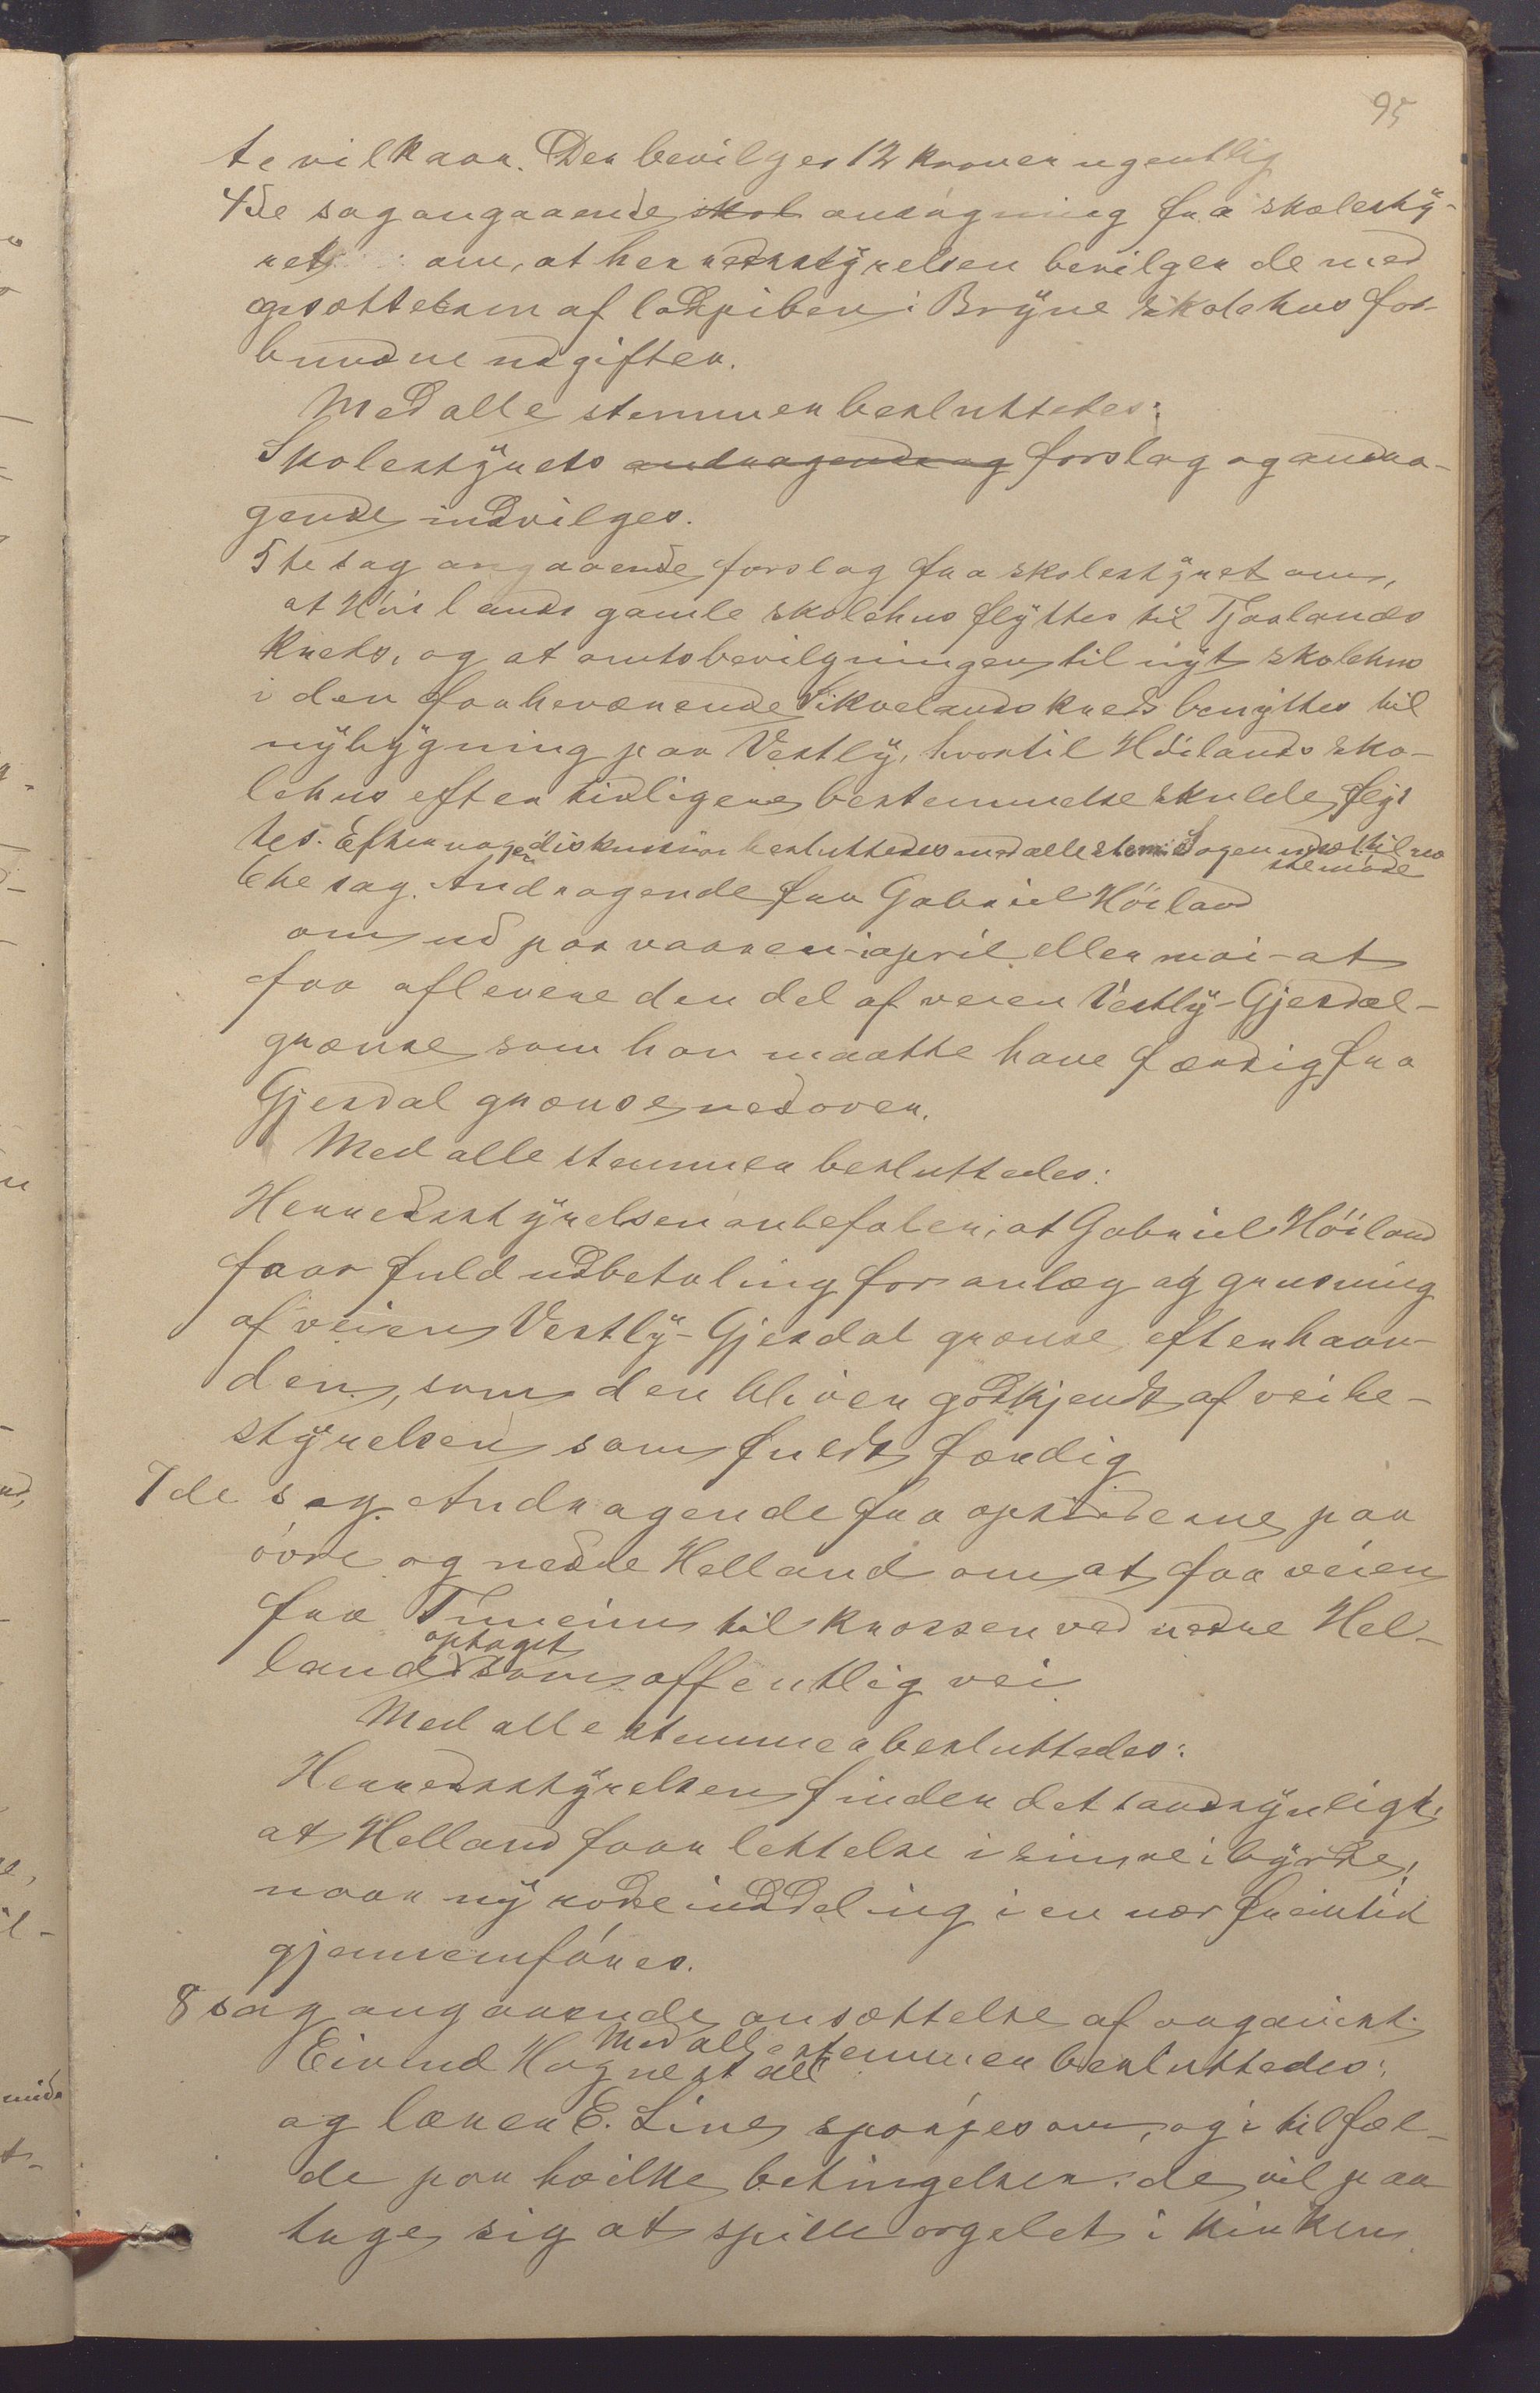 95
te vilkaar. Der bevilges 12 kroner ugentlig
4de sag angaaende skol ansøgning fra skolesty-
ret om, at herredsstyrelsen bevilger de med
opsættelsen af lodpiben i Bryne skolehus for-
bundne udgifter.
Med alle stemmer besluttedes:
Skolestyrets andragende og forslag og andra-
gende indvilges.
5te sag angaaende forslag fra skolestyret om,
at Høilands gamle skolehus flyttes til Tjaalands
kreds, og at amtsbevilgningen til nyt skolehus
i den forhenværende Vikvelands kreds benyttes til
nybygning paa Vestly, hvortil Høilands sko-
lehus efter tidligere bestemmelse skulde flyt
tes. Efter nogen diskussion besluttedes med alle stem: Sagen udsat til næ
ste møde
6te sag. Andragende fra Gabriel Høiland
om ud paa vaaren i april eller mai - at
faa aflevere den del af veien Vestly-Gjesdal-
grænse som han maatte have færdig fra
Gjesdal grænse nedover.
Med alle stemmer besluttedes:
Herredsstyrelsen anbefaler, at Gabriel Høiland
faar fuld udbetaling for anlæg og grusning
af veien Vestly-Gjesdal grænse efterhaan-
den, som den bliver godkjendt af veibe-
styrelsen som fuldt færdig
7de sag. Andragende fra opsidderne paa
øvre og nedre Helland om at faa veien
fra Tuneim til krossen ved nedre Hel-
optaget
land som offentlig vei
Med alle stemmer besluttedes:
Herredsstyrelsen finder det sandsynligt,
at Helland faar lettelse i sin veibyrde,
naar ny rodeinddeling i en nær fremtid
gjennemføres.
8 sag angaaende ansættelse af organist.
Med alle stemmer besluttedes:
Eivind Hognestad
og lærer E. Line spørges om, og i tilfæl-
de paa hvilke betingelser de vil paa
tage sig at spille orgelet i kirken